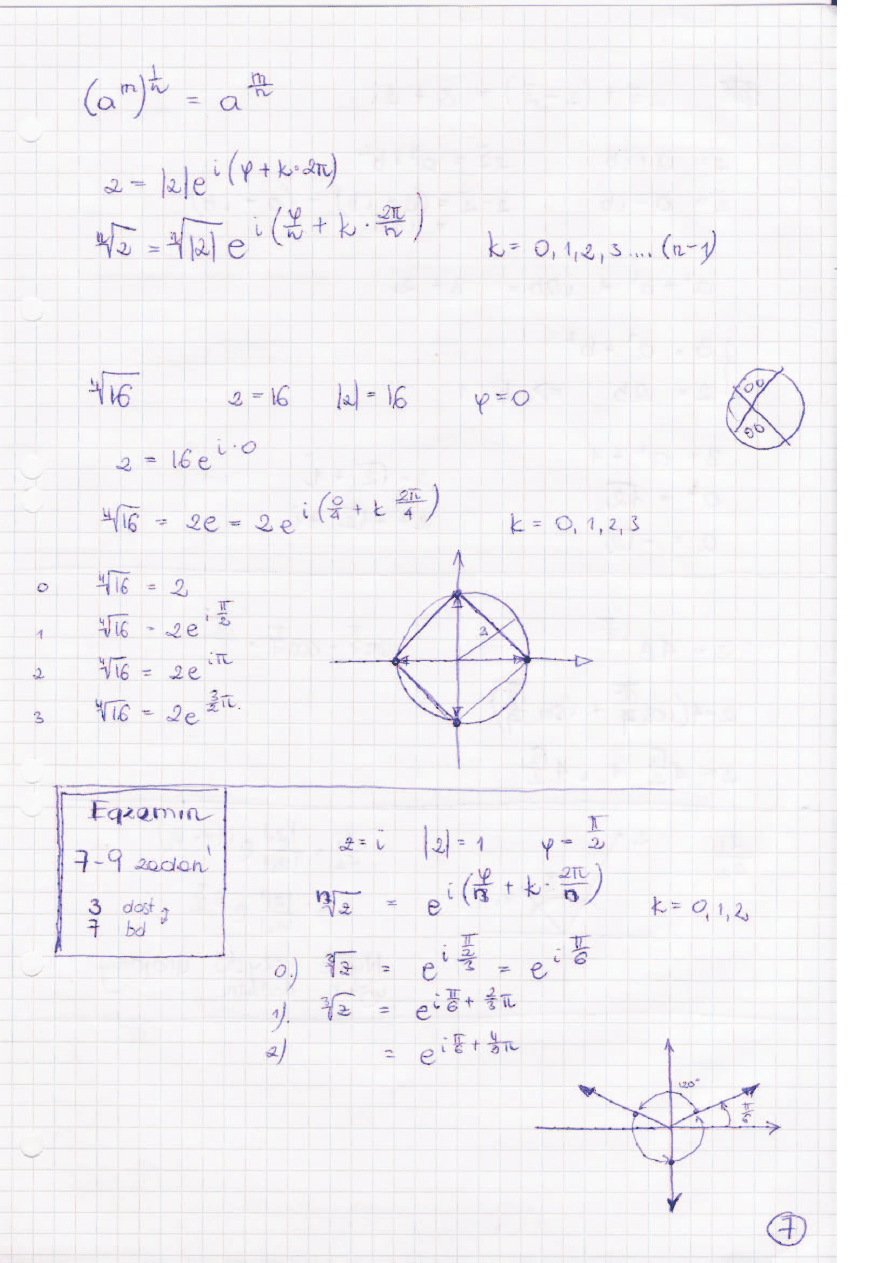 (a^m)^{1/n} = a^{m/n}
z = |z| e^{i(φ + k·2π)}
ⁿ√z = ⁿ√|z| e^{i(φ/n + k · 2π/n)}    k = 0, 1, 2, 3 .... (n-1)
⁴√16    z = 16    |z| = 16    φ = 0
z = 16 e^{i·0}
⁴√16 = 2e = 2e^{i(0/4 + k 2π/4)}    k = 0, 1, 2, 3
0    ⁴√16 = 2
1    ⁴√16 = 2e^{i π/2}
2    ⁴√16 = 2e^{iπ}
3    ⁴√16 = 2e^{3/2 π.}
2
Egzamin
7-9 zadań
3 dost
7 bd
z = i    |z| = 1    φ = π/2
³√z = e^{i(φ/3 + k · 2π/3)}    k = 0, 1, 2
0.) ³√z = e^{i (π/2)/3} = e^{i π/6}
1). ³√z = e^{i π/6 + 2/3 π}
2) = e^{i π/6 + 4/3 π}
120°
π/6
7